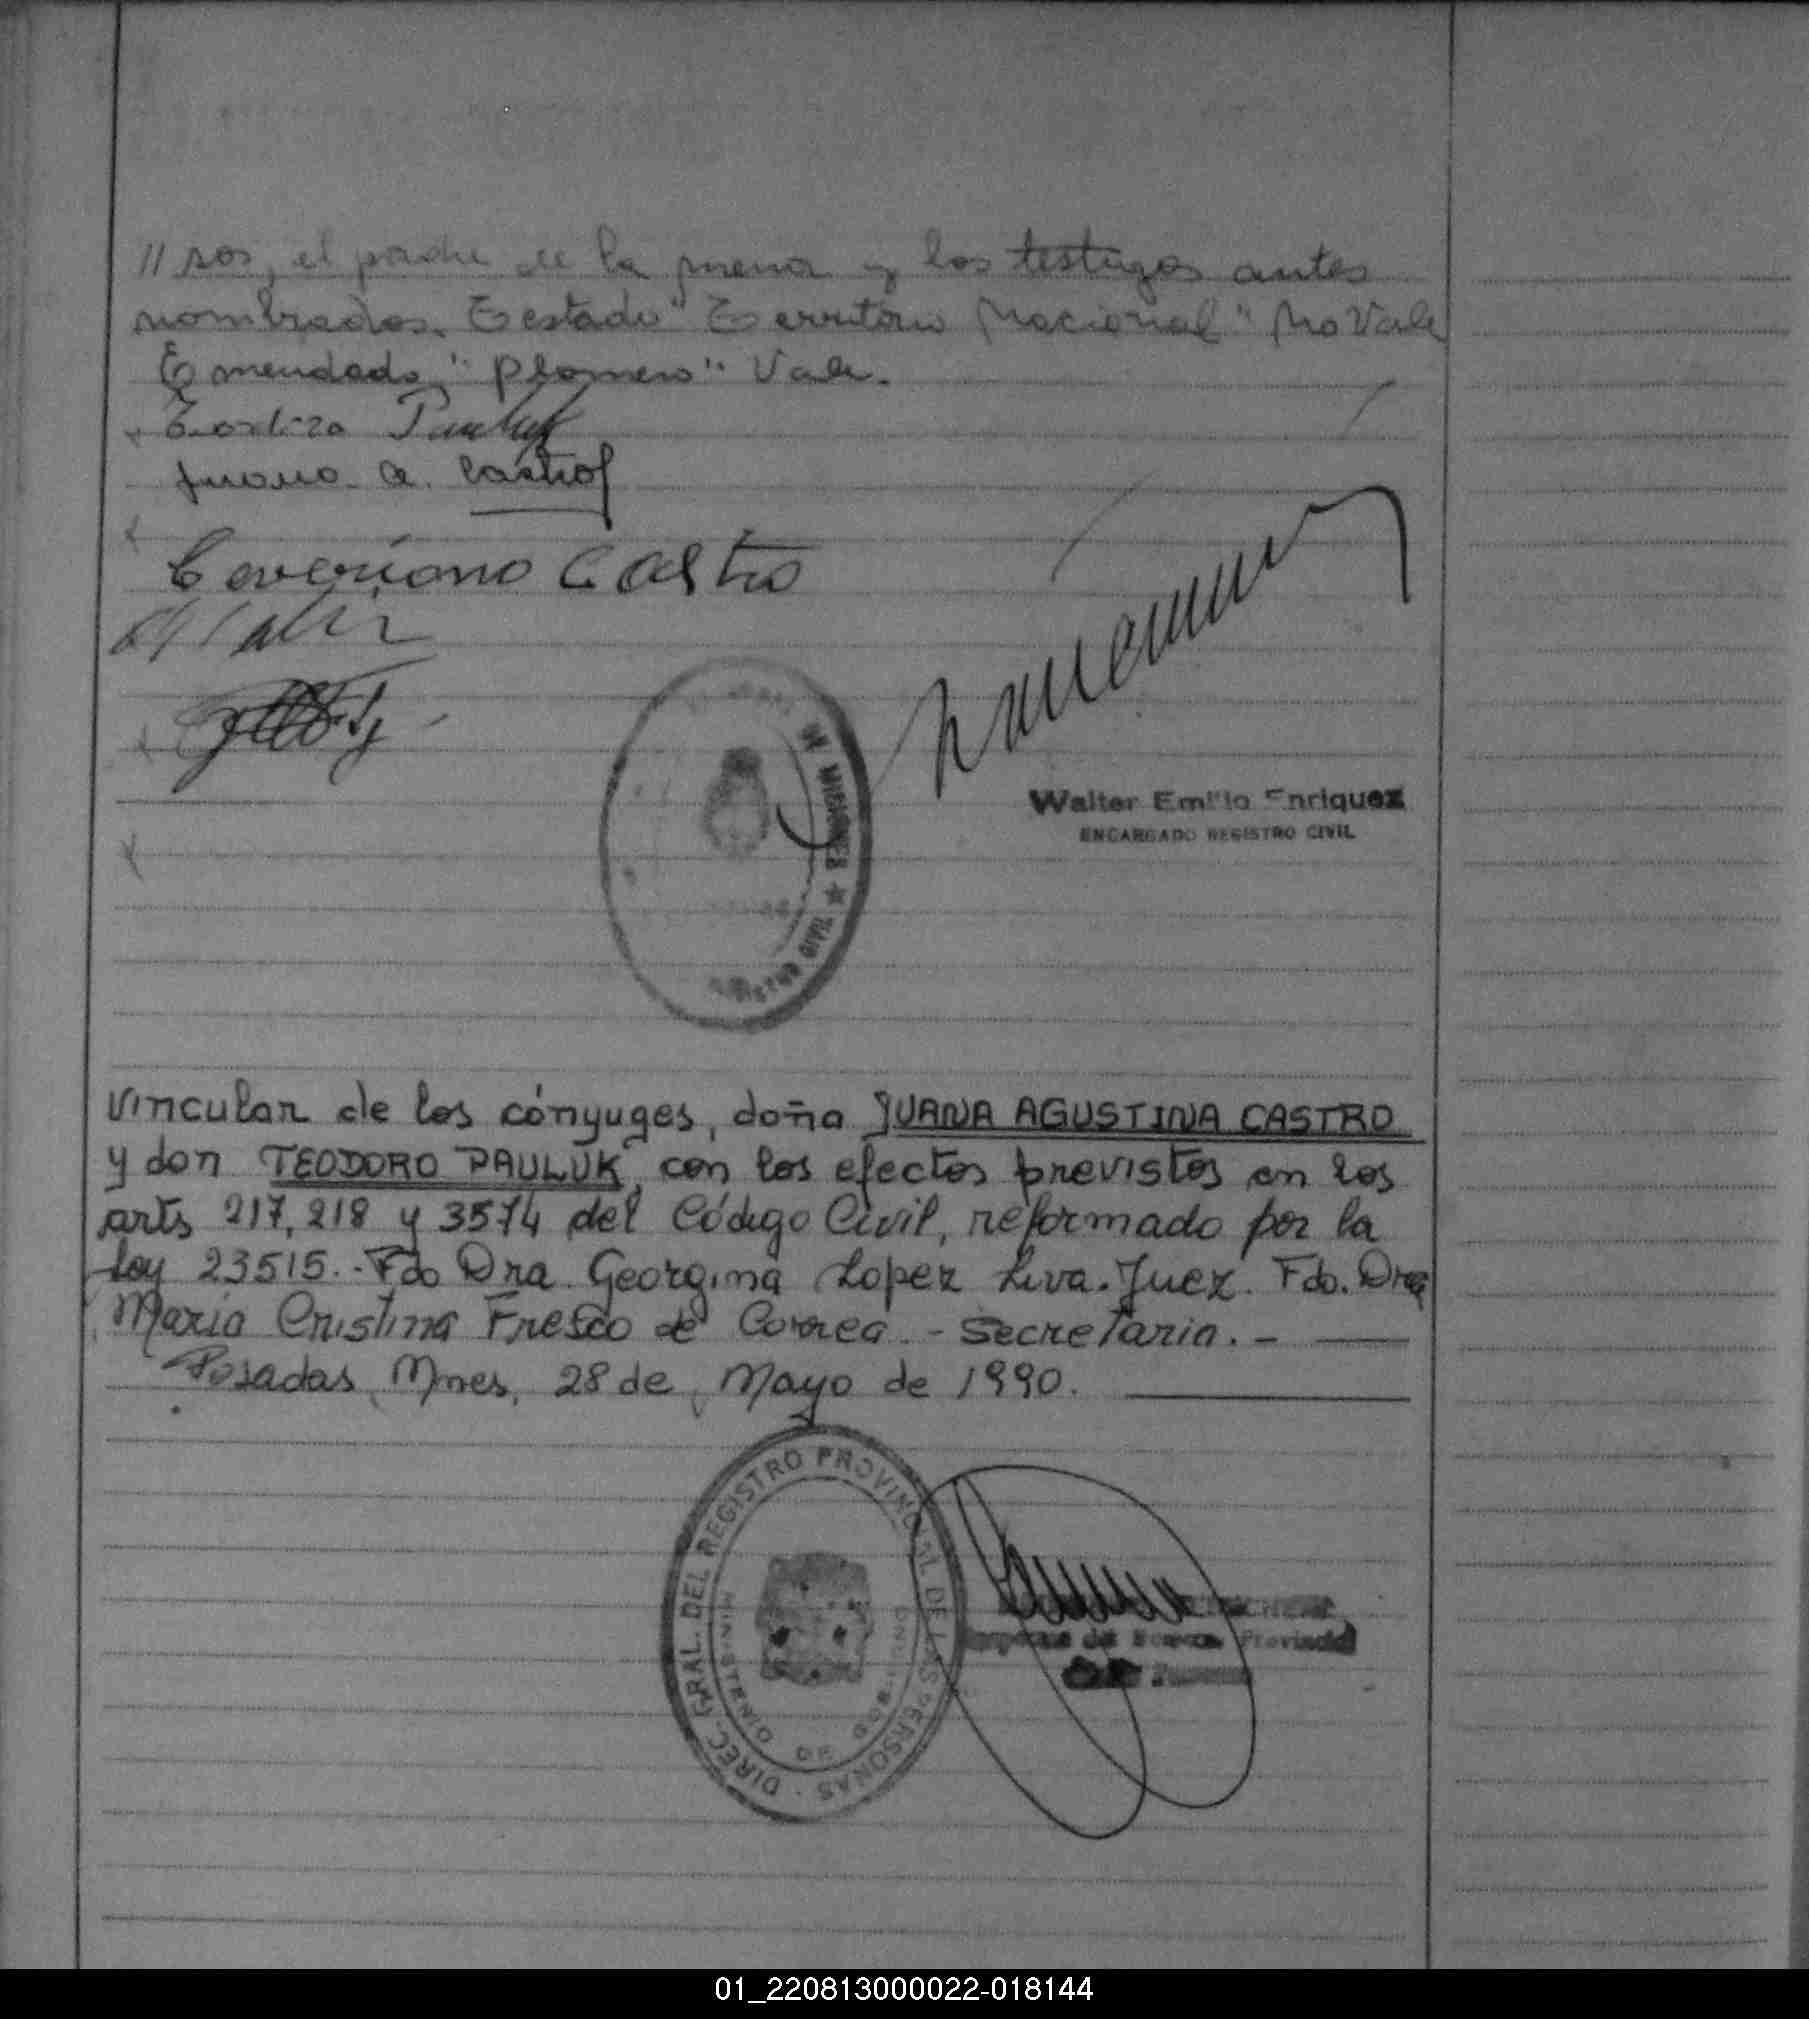 // sos, el padre de la misma y los testigos antes
nombrados. Testado "Territorio Nacional" No Vale
Emendado, "Plomero" Vale.
Pauluk
Juana A. Castro
Ceveriano Castro
MISIONES ★
Walter Emilio Enriquez
ENCARGADO REGISTRO CIVIL
Vincular de los cónyuges, doña JUANA AGUSTINA CASTRO
y don TEODORO PAULUK, con los efectos previstos en los
arts 217, 218 y 3574 del Código Civil, reformado por la
ley 23515.- Fdo Dra. Georgina Lopez Liva. Juez. Fdo. Dra
Maria Cristina Fresco de Correa. - Secretaria. -
Posadas, Mnes, 28 de Mayo de 1990.
DIREC. GRAL. DEL REGISTRO PROVINCIAL DE LAS PERSONAS
MINISTERIO DE GOBIERNO
Provincial
01_220813000022-018144